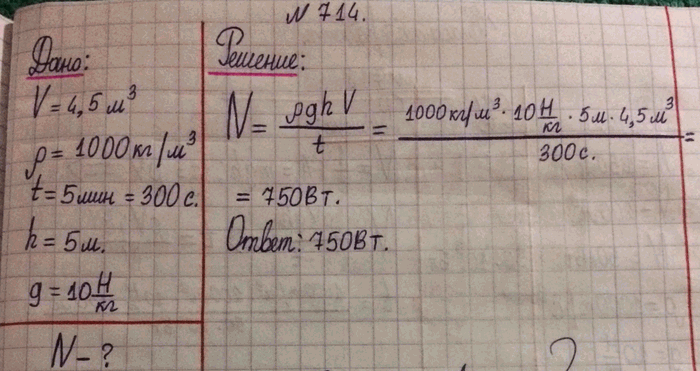 N 714.
Дано:
V = 4,5 м³
ρ = 1000 кг/м³
t = 5 мин = 300 с.
h = 5 м.
g = 10 Н/кг
N – ?
Решение:
N = ρghV/t = 1000 кг/м³ · 10 Н/кг · 5 м · 4,5 м³/300 с. =
= 750 Вт.
Ответ: 750 Вт.